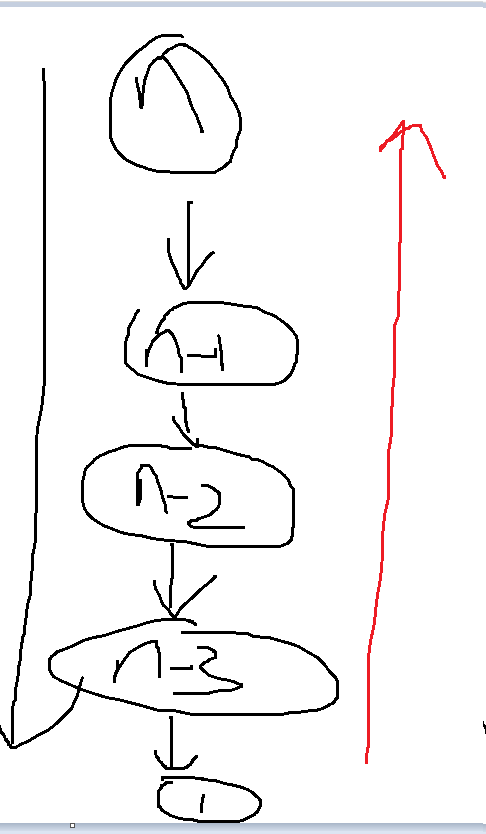 n
n-1
n-2
n-3
1